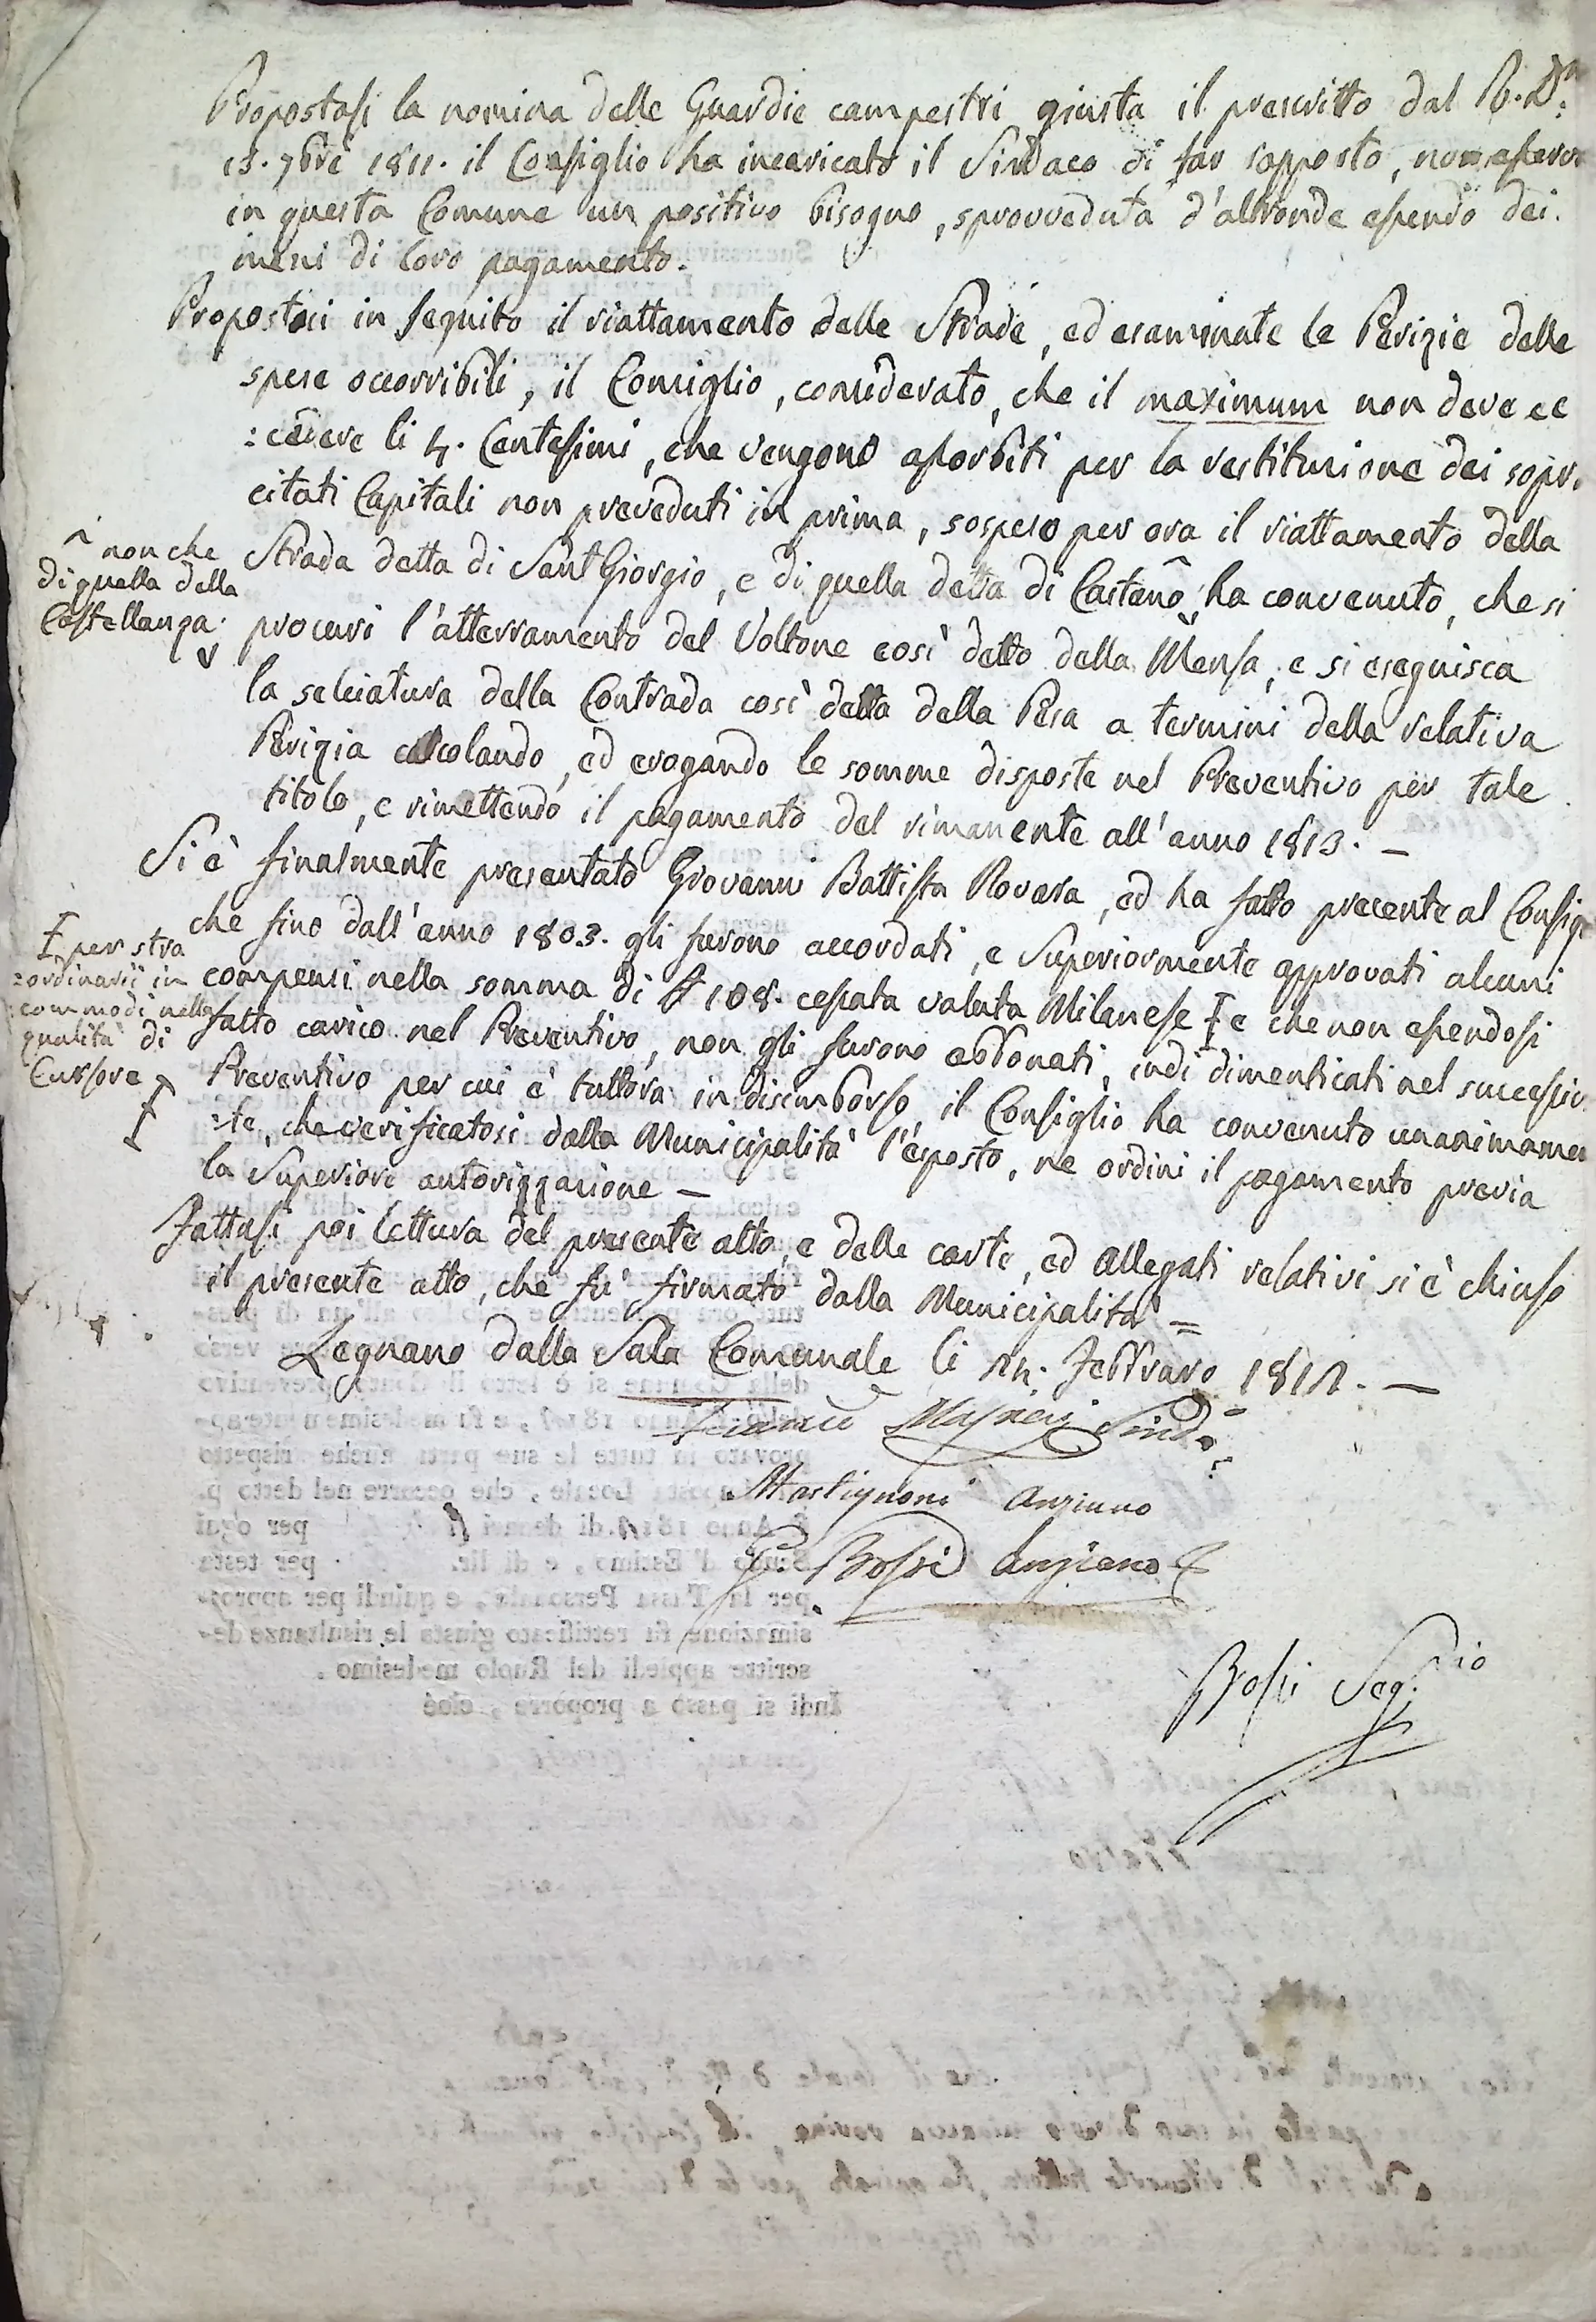 Propostasi la nomina delle Guardie campestri giusta il prescritto dal R. D.
13. 7bre 1811. il Consiglio ha incaricato il Sindaco di far rapporto, non
in questa Comune un positivo bisogno, sprovveduta d'altronde essendo dei
mezzi di loro pagamento.
Propostosi in seguito il riattamento delle Strade, ed esaminate le Perizie delle
spese occorribili, il Consiglio, considerato, che il maximum non deve ec
:cedere li 4. Centesimi, che vengono assorbiti per la restituzione dei sopra
citati Capitali non preveduti in prima, sospeso per ora il riattamento della
Strada detta di Sant Giorgio, e di quella detta di Castano ha convenuto, che si
non che
di quella della
Castellanza
procuri l'atterramento del Voltone così detto della Mensa, e si eseguisca
la selciatura della Contrada così detta della Pesa a termini della relativa
Perizia calcolando, ed erogando le somme disposte nel Preventivo per tale
titolo, e rimettendo il pagamento del rimanente all'anno 1813. -
Si è finalmente presentato Giovanni Battista Rovara, ed ha fatto presente al Consig
che fino dall'anno 1803. gli furono accordati, e Superiormente approvati alcuni
compensi nella somma di 108. cessata valuta Milanese e che non essendosi
per stra
:ordinarii in
:commodi nella
qualità di
Cursore
fatto carico nel Preventivo, non gli furono abbonati, indi dimenticati nel successiv
Preventivo per cui è tuttora in disimborso, il Consiglio ha convenuto unanimamen
:te, che verificatosi dalla Municipalità l'esposto, ne ordini il pagamento previa
la Superiore autorizzazione -
Fattasi poi lettura del presente atto, e delle carte, ed allegati relativi si è chiuso
il presente atto, che fu firmato dalla Municipalità =
Legnano dalla Sala Comunale li 24. Febbraro 1812. -
Sind.
Martignoni Anziano
G. Bossi Anziano
Bossi Seg.rio